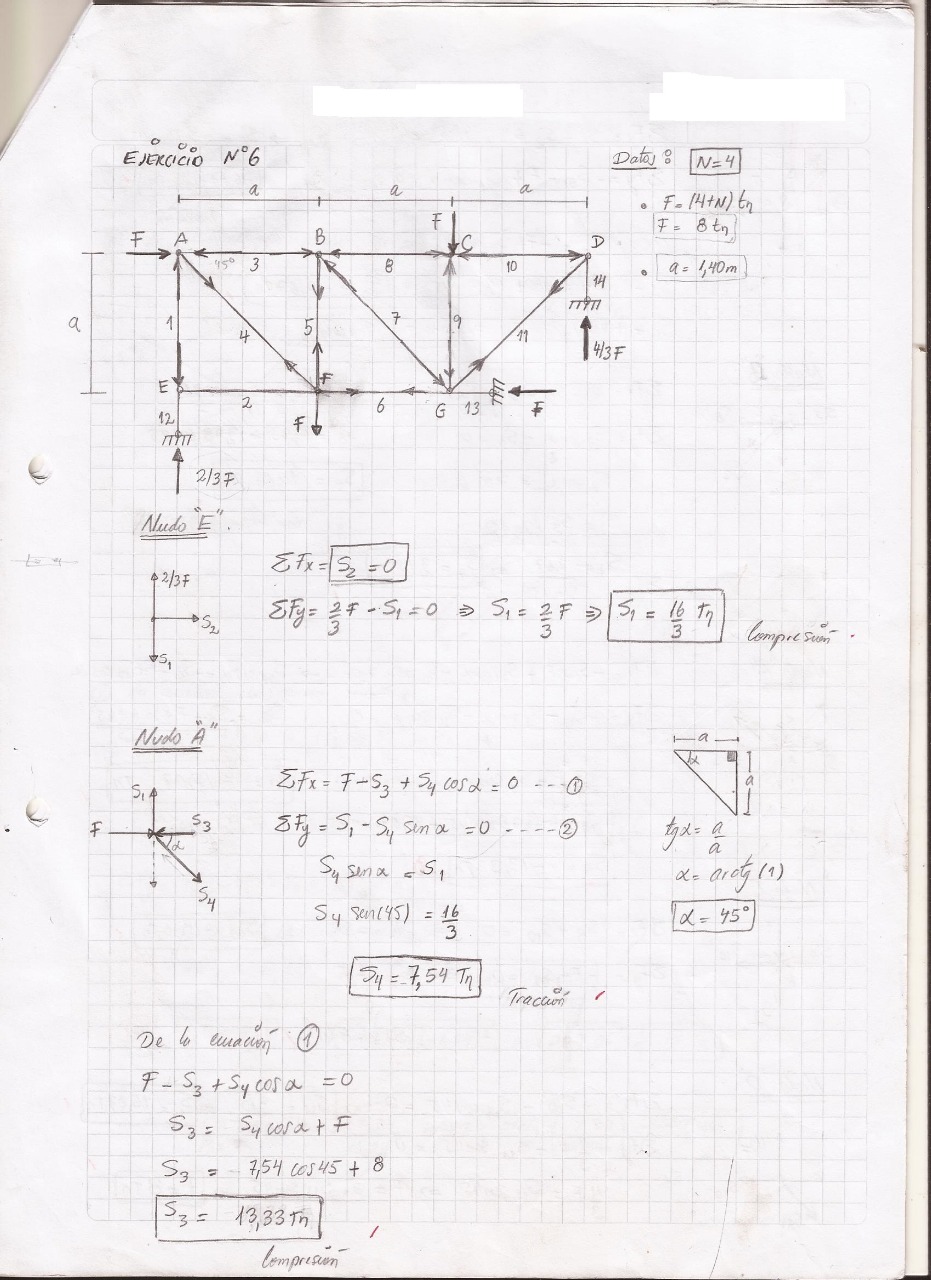 EJERCICIO N°6
Datos: N=4
a a a
• F=(4+N) tn
F= 8 tn
• a=1,40m
F A B F C D
45° 3 8 10
14
a 1 4 5 7 9 11
4/3F
E 2 F 6 G 13 F
12 F
2/3F
Nudo "E".
2/3F
S2
S1
ΣFx= S2 =0
ΣFy= 2/3 F - S1 =0 ⇒ S1 = 2/3 F ⇒ S1 = 16/3 Tn
Compresión.
Nudo "A"
S1
F S3
α
S4
ΣFx= F-S3 + S4 cosα = 0 --- ①
ΣFy= S1 - S4 sen α =0 ---- ②
S4 senα = S1
S4 sen(45) = 16/3
S4 = 7,54 Tn
Tracción
a
α
a
tgα= a/a
α= arctg (1)
α= 45°
De la ecuación ①
F - S3 + S4 cosα = 0
S3 = S4 cosα + F
S3 = 7,54 cos45 + 8
S3 = 13,33 Tn
Compresión